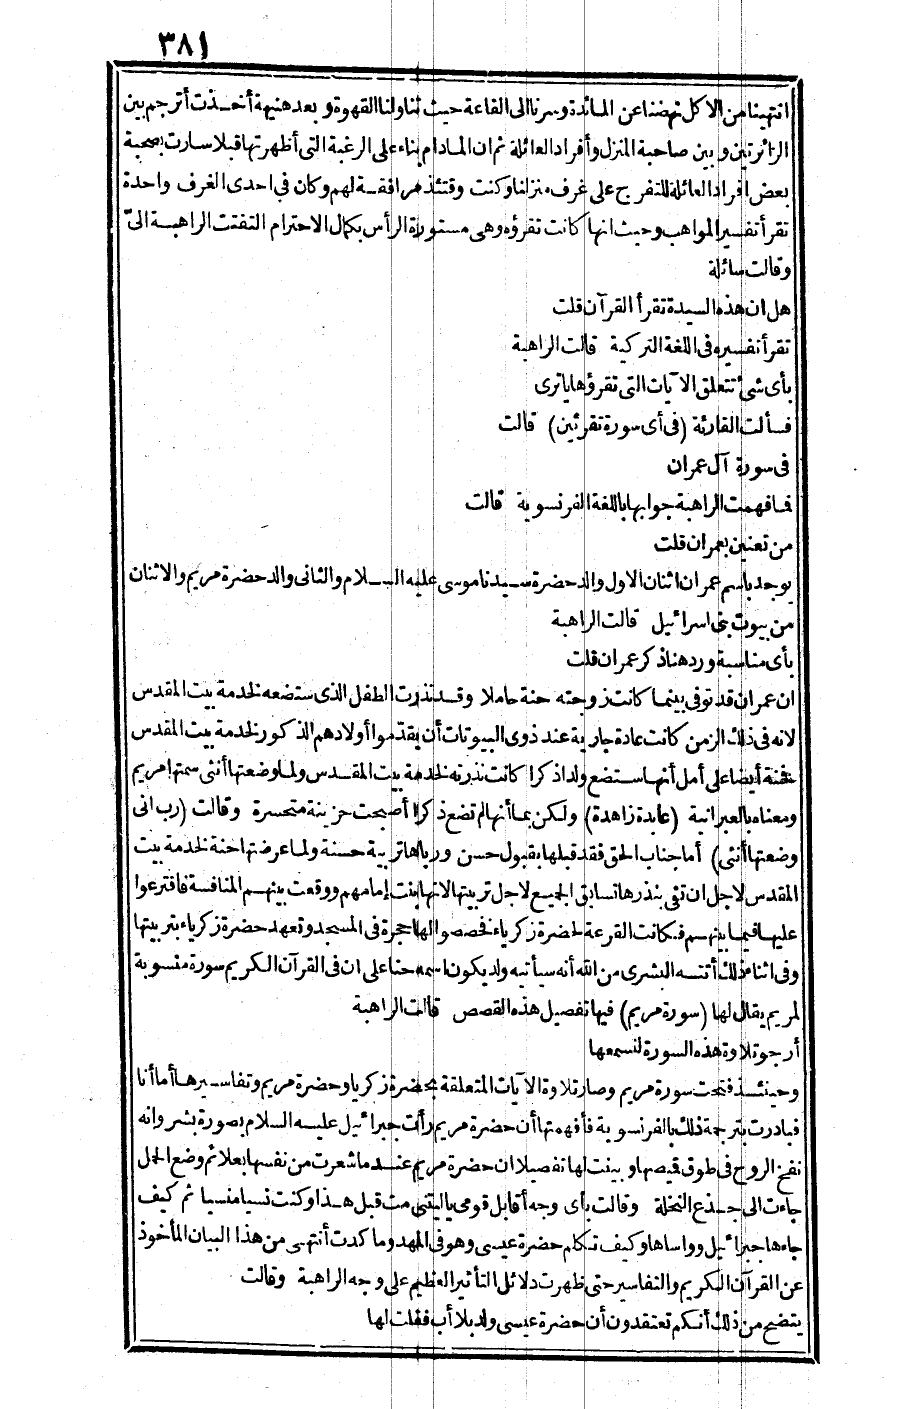 ٣٨١
انتهينا من الاكل نهضنا عن المائدة وسرنا الى القاعة حيث تناولنا القهوة وبعد هنيهة أخذت أترجم بين
الزائرتين وبين صاحبة المنزل وأفراد العائلة ثم ان المادام بناء على الرغبة التى أظهرتها قبلا سارت بصحبة
بعض افراد العائلة للتفرج على غرف منزلنا وكنت وقتئذ مرافقة لهم وكان فى احدى الغرف واحدة
تقرأ تفسير المواهب وحيث انها كانت تقرؤه وهى مستورة الرأس بكمال الاحترام التفتت الراهبة الىّ
وقالت سائلة
هل ان هذه السيدة تقرأ القرآن قلت
تقرأ تفسيره فى اللغة التركية قالت الراهبة
بأى شئ تتعلق الآيات التى تقرؤها ياترى
فسألت القارئة (فى أى سورة تقرئين) قالت
فى سورة آل عمران
فافهمت الراهبة جوابها باللغة الفرنسوية قالت
من تعنين بعمران قلت
يوجد باسم عمران اثنان الاول والد حضرة سيدنا موسى عليه السلام والثانى والد حضرة مريم والاثنان
من بيوت بنى اسرائيل قالت الراهبة
بأى مناسبة ورد هنا ذكر عمران قلت
ان عمران قد توفى بينما كانت زوجته حنة حاملا وقد نذرت الطفل الذى ستضعه لخدمة بيت المقدس
لانه فى ذلك الزمن كانت عادة جارية عند ذوى البيوتات أن يقدّموا أولادهم الذكور لخدمة بيت المقدس
فحنة أيضا على أمل أنها ستضع ولدا ذكرا كانت نذرته لخدمة بيت المقدس ولما وضعتها أنثى سمتها مريم
ومعناه بالعبرانية (عابدة زاهدة) ولكن بما أنها لم تضع ذكرا أصبحت حزينة متحسرة وقالت (رب انى
وضعتها أنثى) أما جناب الحق فقد قبلها بقبول حسن ورباها تربية حسنة ولما عرضتها حنة لخدمة بيت
المقدس لاجل ان تفى بنذرها تسابق الجميع لاجل تربيتها لانها بنت إمامهم ووقعت بينهم المنافسة فاقترعوا
عليها فيما بينهم فكانت القرعة لحضرة زكرياء فخصصوا لها حجرة فى المسجد وتعهد حضرة زكرياء بتربيتها
وفى اثناء ذلك أتته البشرى من الله أنه سيأتيه ولد يكون اسمه حنا على ان فى القرآن الكريم سورة منسوبة
لمريم يقال لها (سورة مريم) فيها تفصيل هذه القصص قالت الراهبة
أرجو تلاوة هذه السورة لنسمعها
وحينئذ فتحت سورة مريم وصار تلاوة الآيات المتعلقة بحضرة زكريا وحضرة مريم وتفاسيرها أما أنا
فبادرت بترجمة ذلك بالفرنسوية فأفهمتها أن حضرة مريم رأت جبرائيل عليه السلام بصورة بشر وانه
نفخ الروح فى طوق قميصها وبينت لها تفصيلا ان حضرة مريم عند ما شعرت من نفسها بعلائم وضع الحمل
جاءت الى جذع النخلة وقالت بأى وجه أقابل قومى ياليتنى مت قبل هذا وكنت نسيا منسيا ثم كيف
جاءها جبرائيل وواساها وكيف تكلم حضرة عيسى وهو فى المهد وما كدت أنتهى من هذا البيان المأخوذ
عن القرآن الكريم والتفاسير حتى ظهرت دلائل التأثير العظيم على وجه الراهبة وقالت
يتضح من ذلك أنكم تعتقدون أن حضرة عيسى ولد بلا أب فقلت لها